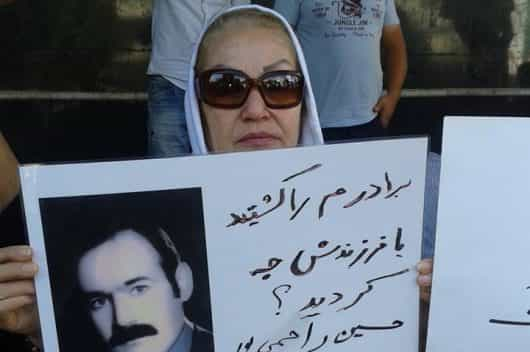 JUNGLE JIM
برادرم را کشتید
با فرزندش چه
کردید؟
حسین راحمی پور